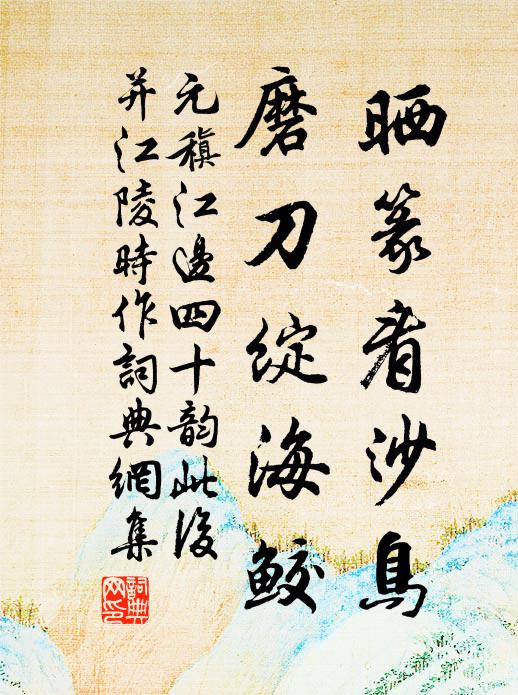 晒篆看沙鳥
磨刀綻海鮫
元稹江邊四十韵此後
并江陵時作詞典網集
詞典網印